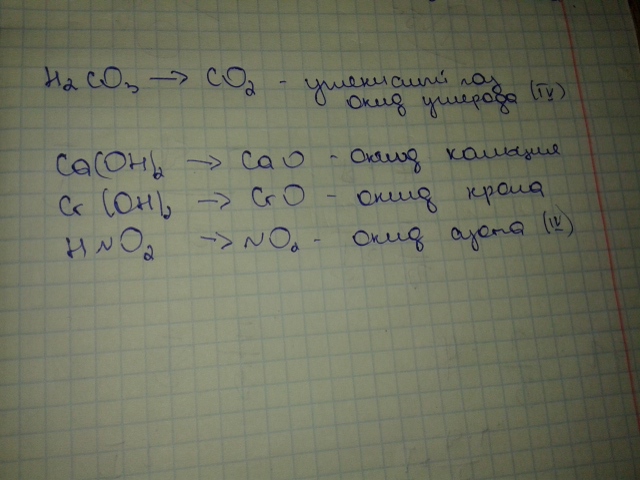 H₂CO₃ → CO₂ - углекислый газ
оксид углерода (IV)
Ca(OH)₂ → CaO - оксид кальция
Cr(OH)₂ → CrO - оксид хрома
HNO₂ → NO₂ - оксид азота (IV)